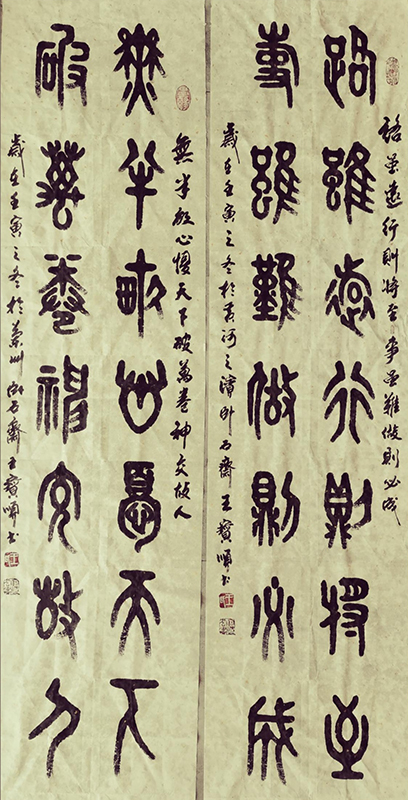 路虽遠行則將至事虽難做則必成
路雖遠行則將至
事雖難做則必成
歲在壬寅之冬於黄河之濱卧石齋王寶順书
無半畝心憂天下破萬卷神交故人
無半畝心憂天下
破萬卷神交故人
歲在壬寅之冬於蘭州卧石齋王寶順书